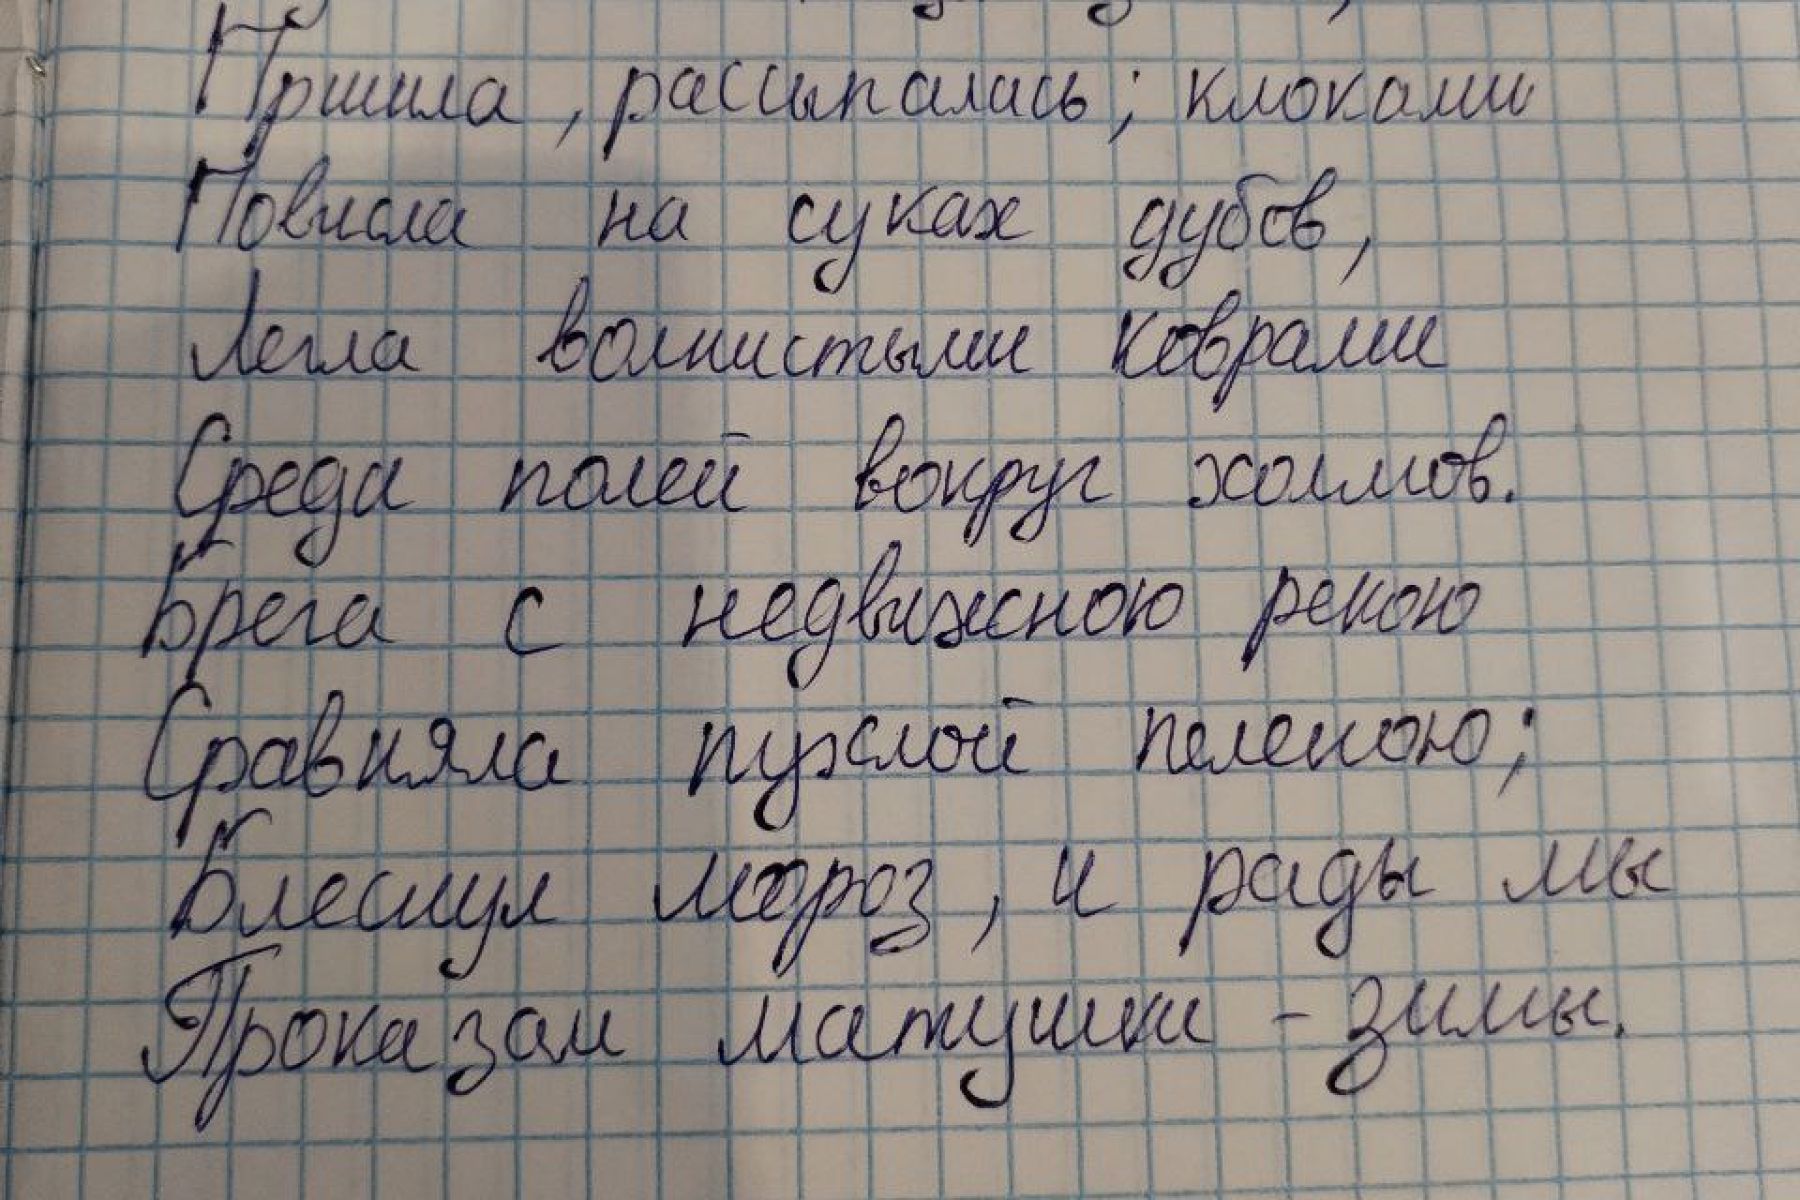 Пришла, рассыпалась; клоками
Повисла на суках дубов,
Легла волнистыми коврами
Среди полей вокруг холмов.
Брега с недвижною рекою
Сравняла пухлой пеленою;
Блеснул мороз, и рады мы
Проказам матушки - зимы.